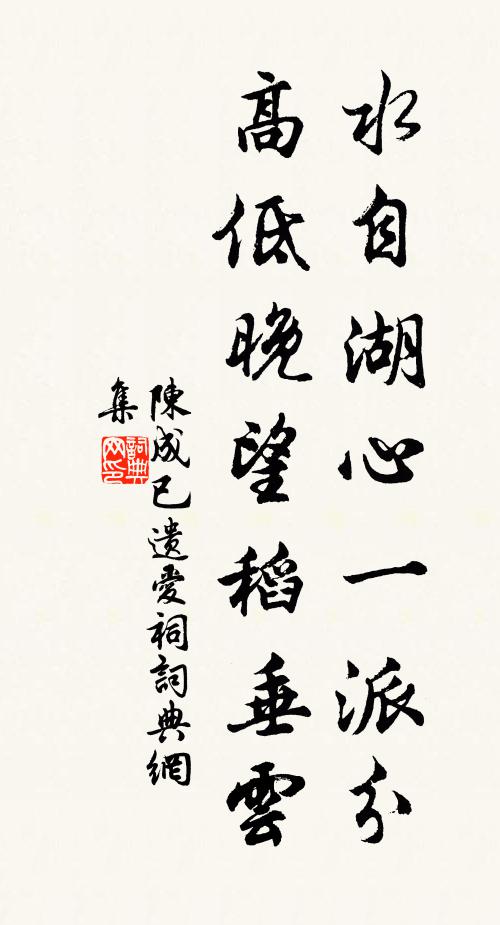 水自湖心一派分
高低晚望稻垂雲
陳成已遺愛祠詞典網
集
詞典
网印